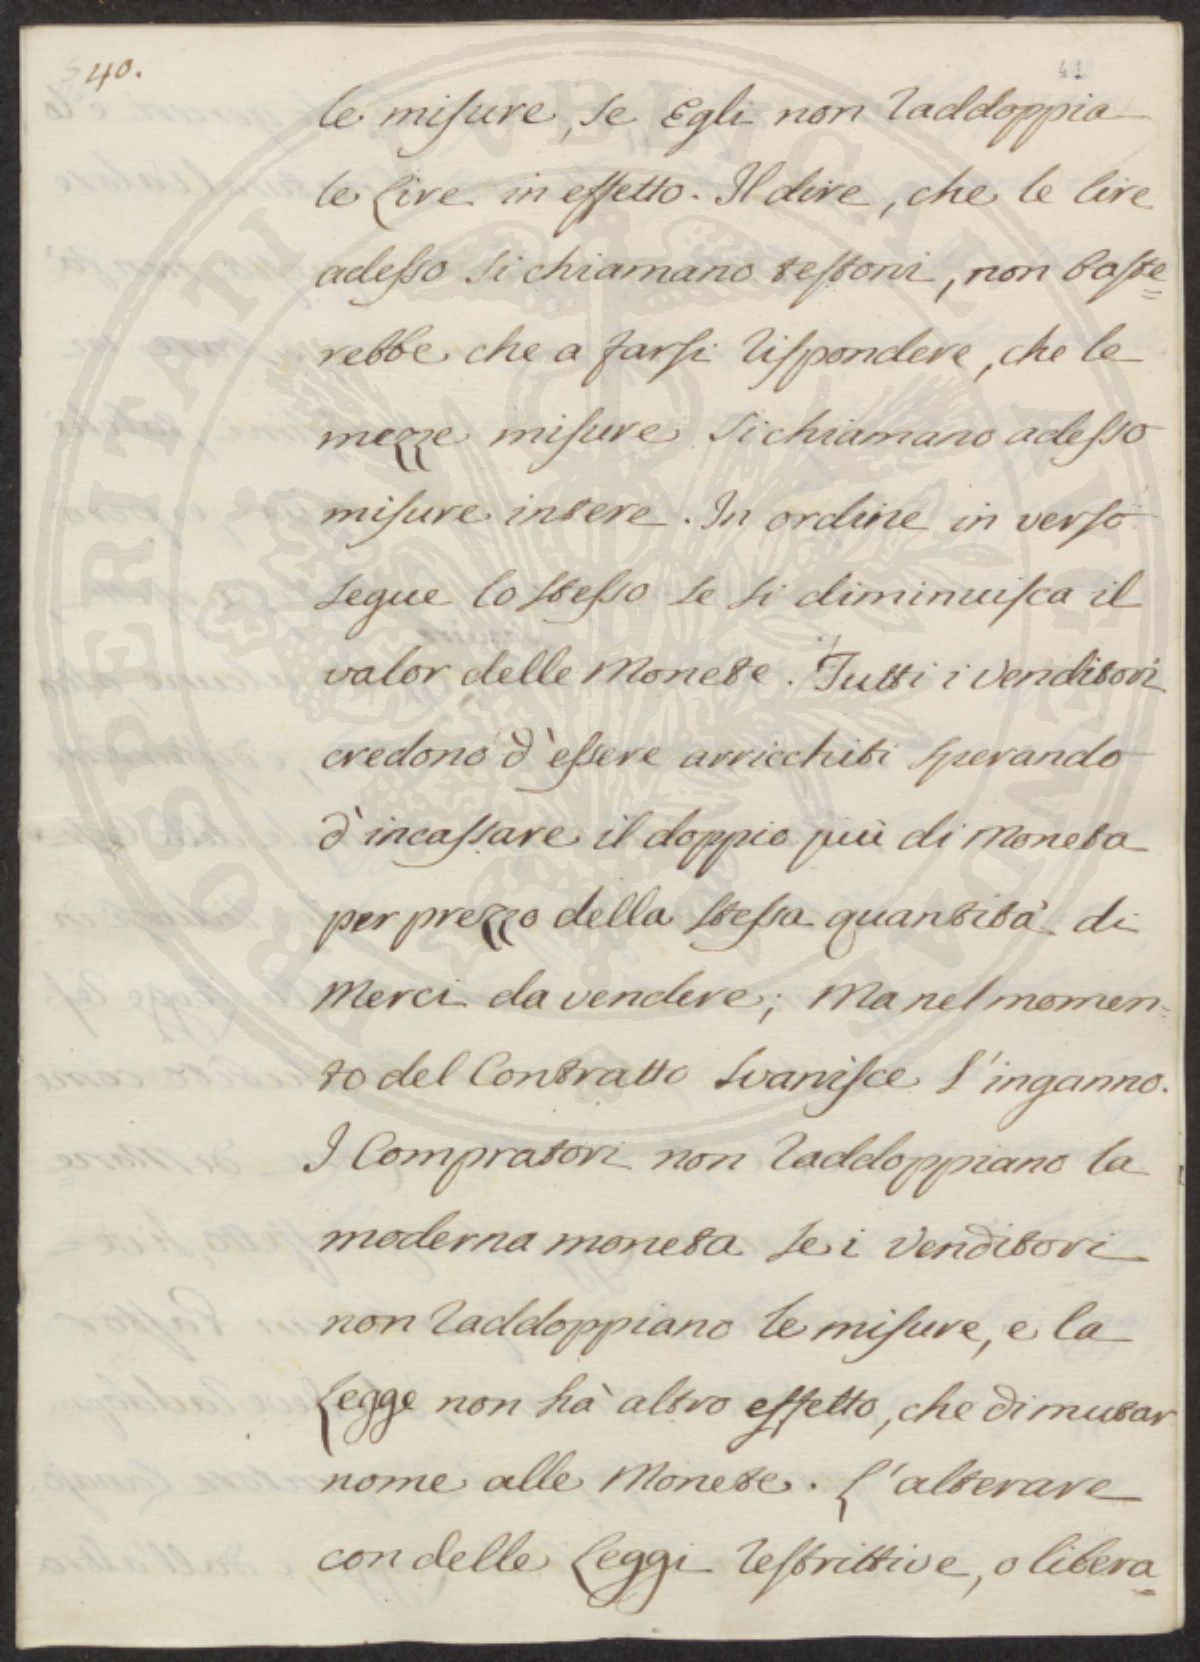 40.
41
le misure, se Egli non raddoppia
le Lire in effetto. Il dire, che le lire
adesso si chiamano testoni, non baste=
rebbe che a farsi rispondere, che le
mezze misure si chiamano adesso
misure intere. In ordine in verso
segue lo stesso se si diminuisca il
valor delle Monete. Tutti i Venditori
credono d'essere arricchiti sperando
d'incassare il doppio più di Moneta
per prezzo della stessa quantità di
Merci da vendere; Ma nel momen=
to del Contratto svanisce l'inganno.
I Compratori non raddoppiano la
moderna moneta se i Venditori
non raddoppiano le misure, e la
Legge non hà altro effetto, che di mutar
nome alle Monete. L'alterare
con delle Leggi restrittive, o libera=
PROSPERITATI PVBLICAE AVGENDAE